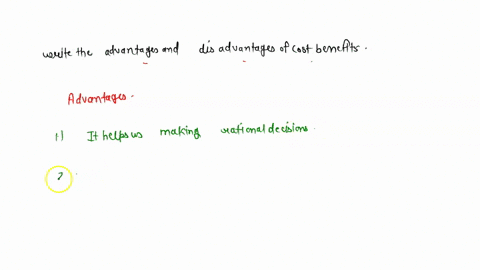 write the advantages and dis advantages of cost benefits.
Advantages.
1) It helps us making rational decisions.
2